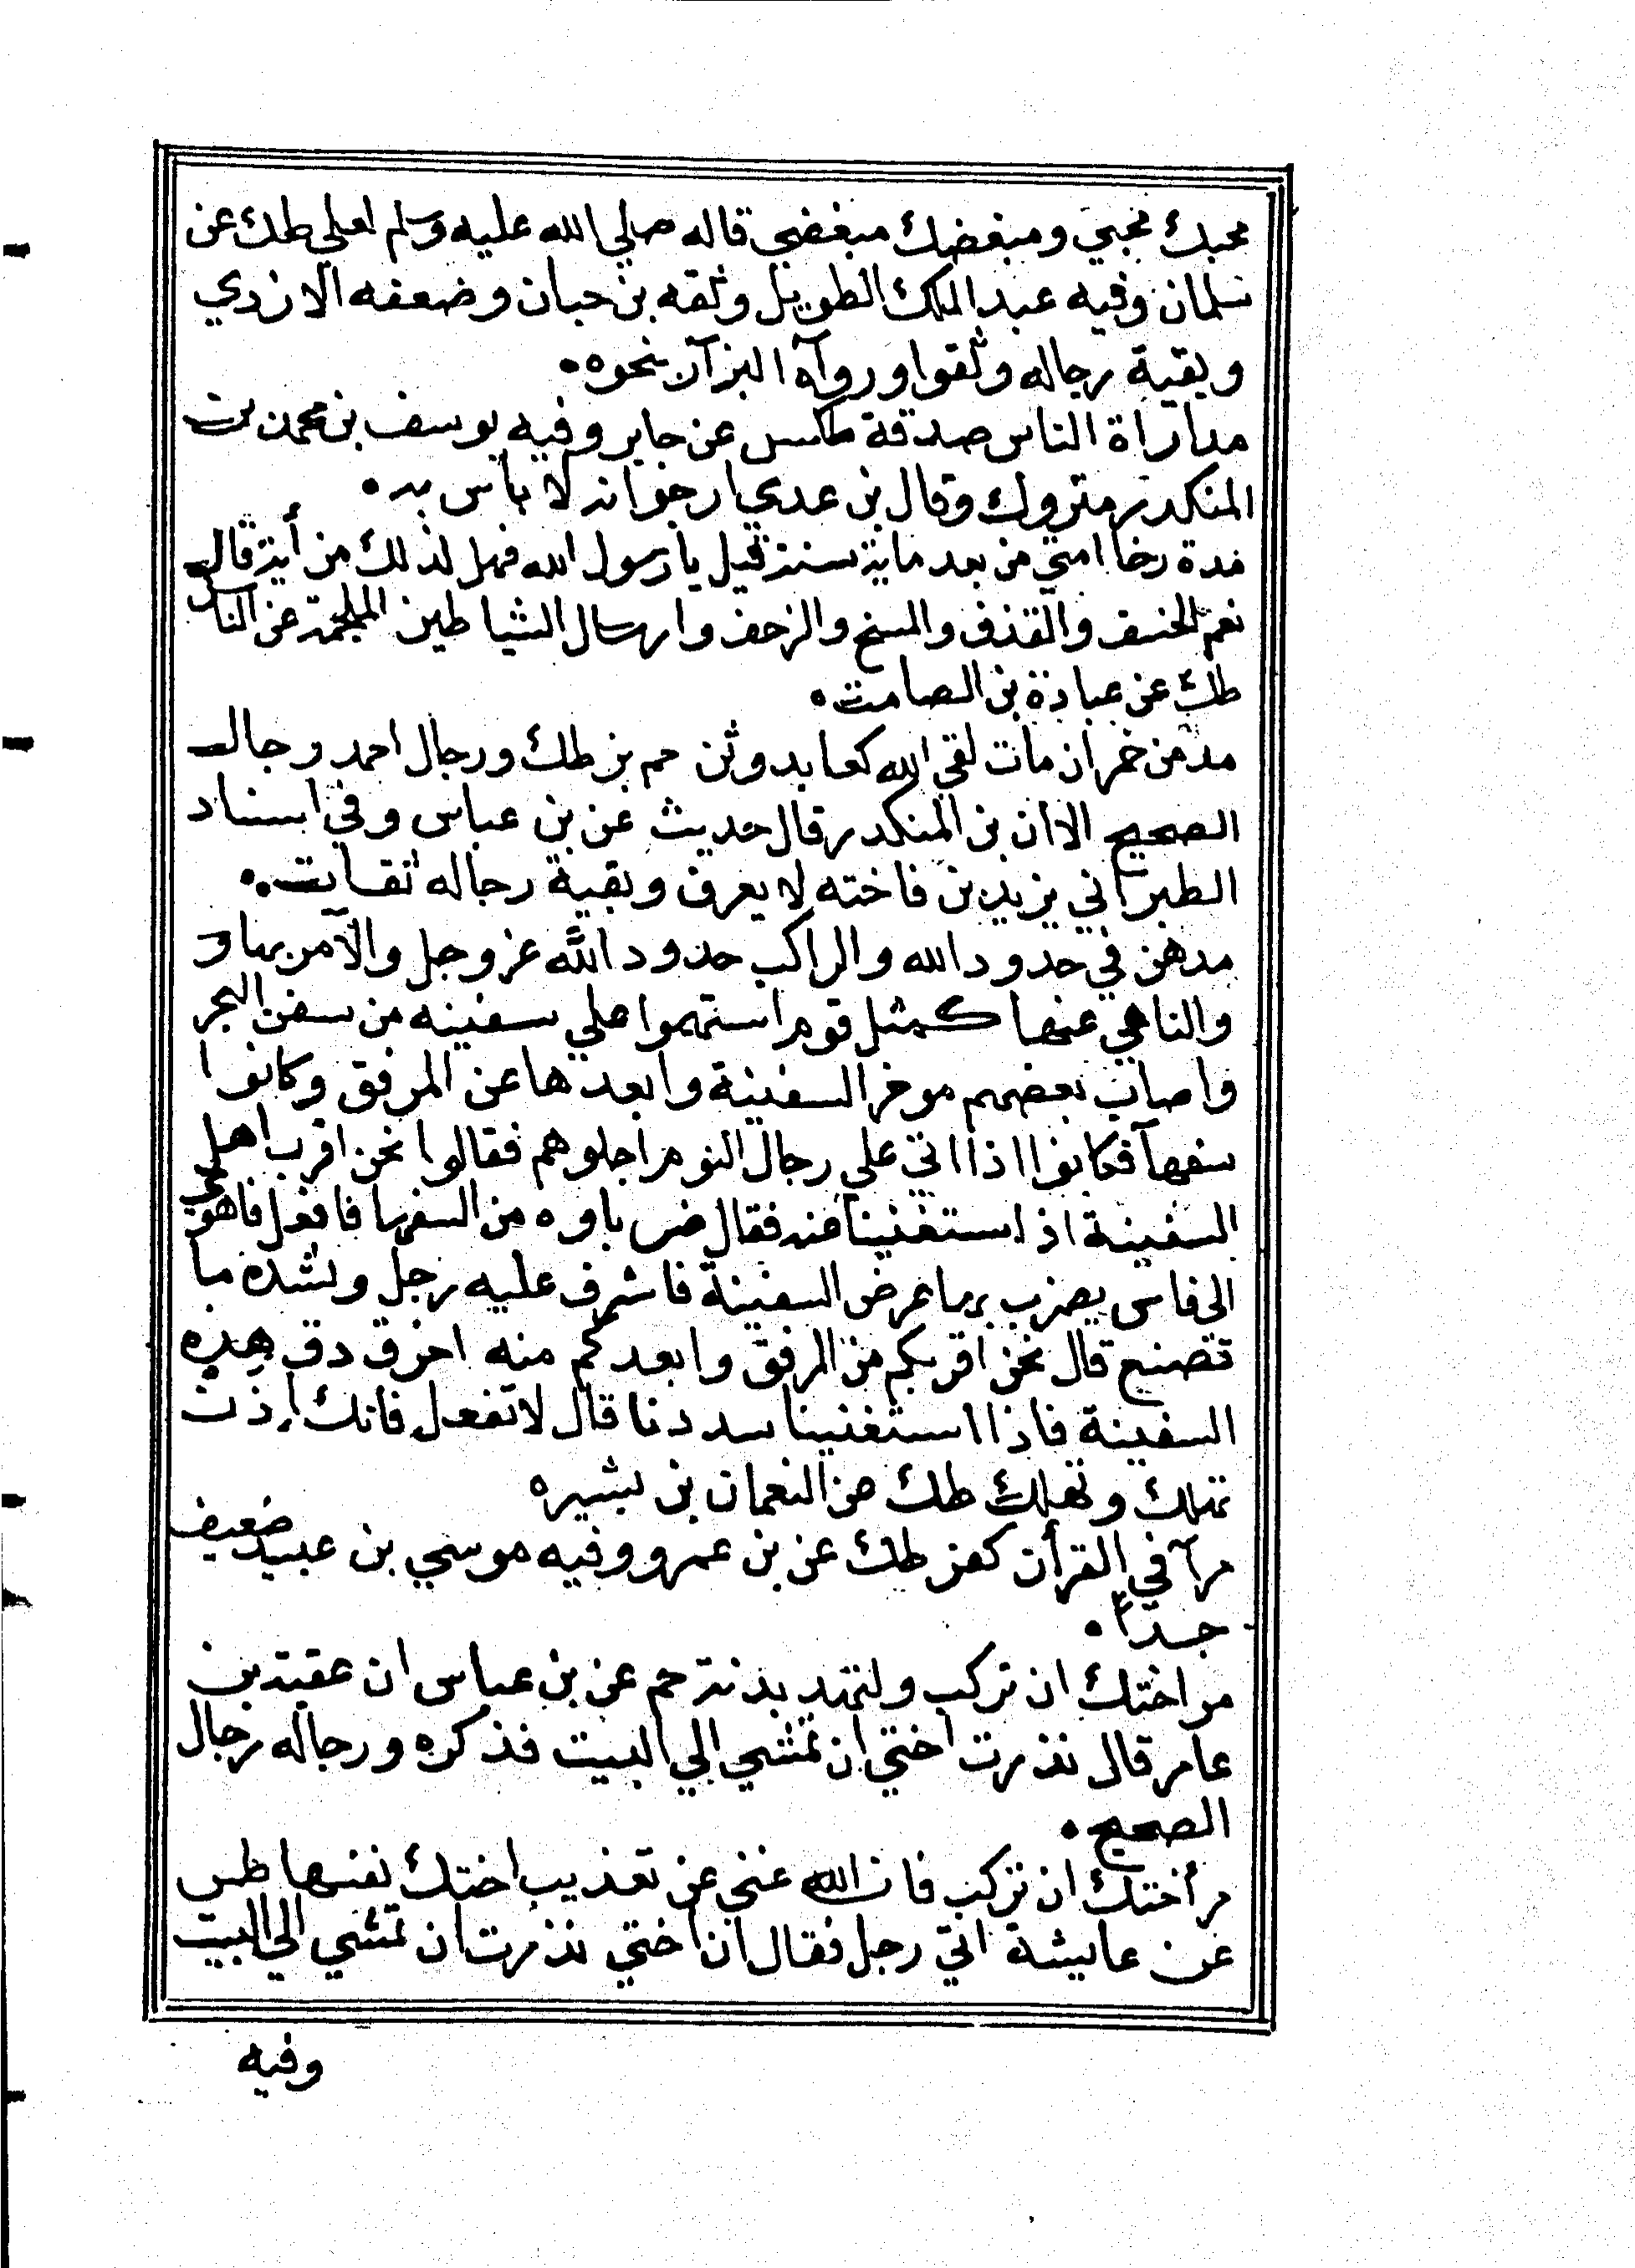 محبك محبي ومبغضك مبغضي قاله صلي الله عليه وسلم لعلى طك عن
سلمان وفيه عبد الملك الطويل وثقه بن حبان وضعفه الازدي
وبقية رجاله وثقوا ورواه البزار بنحوه.
مداراة الناس صدقة طس عن جابر وفيه يوسف بن محمد بن
المنكدر متروك وقال بن عدي ارجوا انه لا باس به.
مدة رخا امتي من بعد ماية سنة قيل يا رسول الله فهل لذلك من أية قال
نعم الخسف والقذف والمسخ والزحف وارسال الشياطين الملجمة عن الناس
طك عن عبادة بن الصامت.
مدمن خمر ان مات لقي الله كعابد وثن حم بز طك ورجال احمد رجال
الصحيح الا ان بن المنكدر قال حديث عن بن عباس وفي اسناد
الطبراني يزيد بن فاخته لا يعرف وبقية رجاله ثقات.
مدهن في حدود الله والراكب حدود الله عز وجل والآمر بها و
والناهي عنها كمثل قوم استهموا علي سفينه من سفن البحر
واصاب بعضهم موخر السفينة وابعدها عن المرفق وكانوا
سفها فكانوا اذا اتي علي رجال القوم اجلوهم فقالوا نحن اقرب اهل
السفينة اذ استغنينا عنه فقال من السفها فافعل فاهوي
الى فاس يضرب بها عرض السفينة فاشرف عليه رجل ونشده ما
تصنع قال نحن اقربكم من المرفق وابعدكم منه اخرق دق هذه
السفينة فاذا استغنينا سددنا قال لا تفعل فانك اذن
تهلك وتهلك طك عن النعمان بن بشير
مرآ في القرأن كفر طك عن بن عمرو وفيه موسي بن عبيد ضعيف
جداً.
مر اختك ان تركب ولتهد بدنة حم عن بن عباس ان عقبة بن
عامر قال نذرت اختي ان تمشي الي البيت فذكره ورجاله رجال
الصحيح.
مر أختك ان تركب فان الله غني عن تعذيب اختك نفسها طس
عن عايشة اتي رجل فقال ان اختي نذرت ان تمشي الي البيت
وفيه